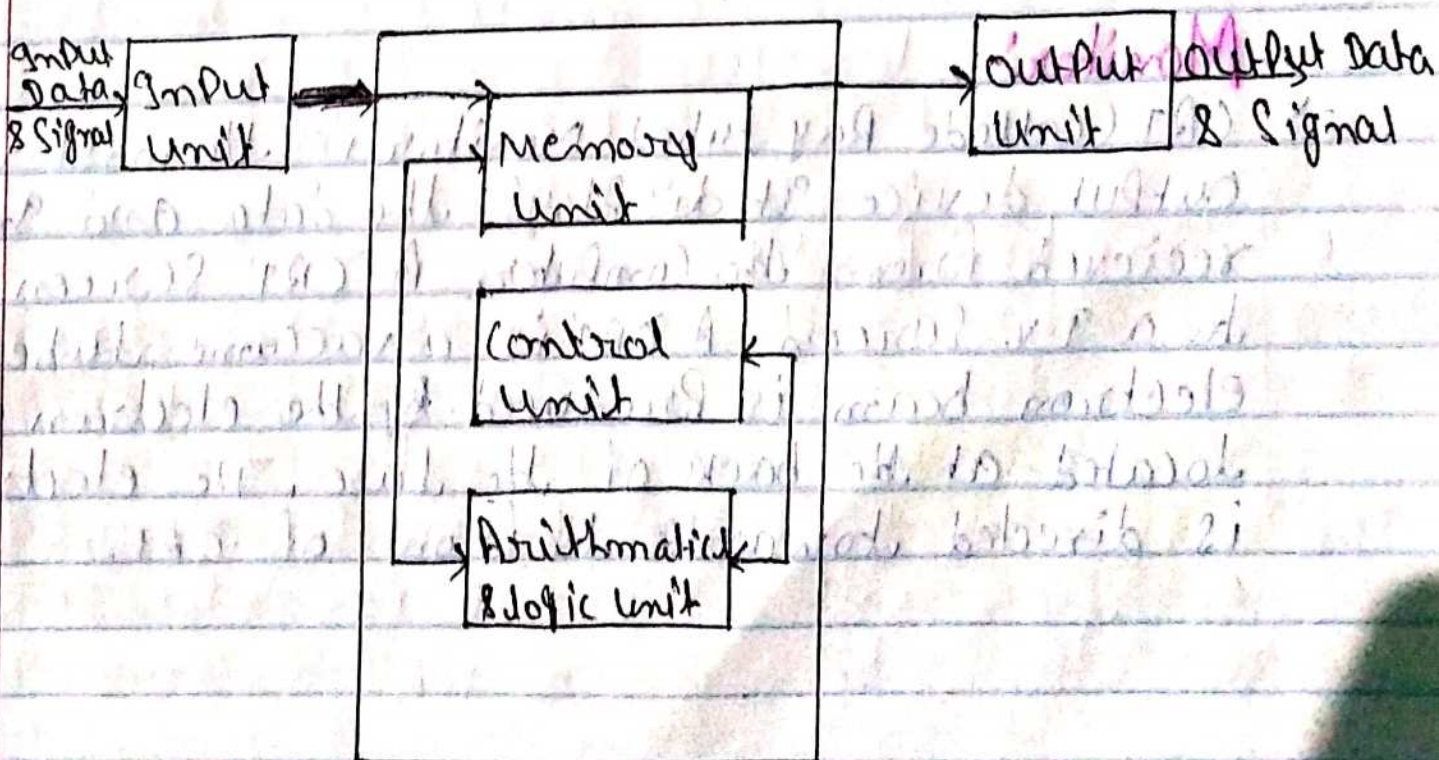 Input
Data
& Signal
Input
Unit
Memory
Unit
Control
Unit
Arithmatic
& logic Unit
Output
Unit
Output Data
& Signal